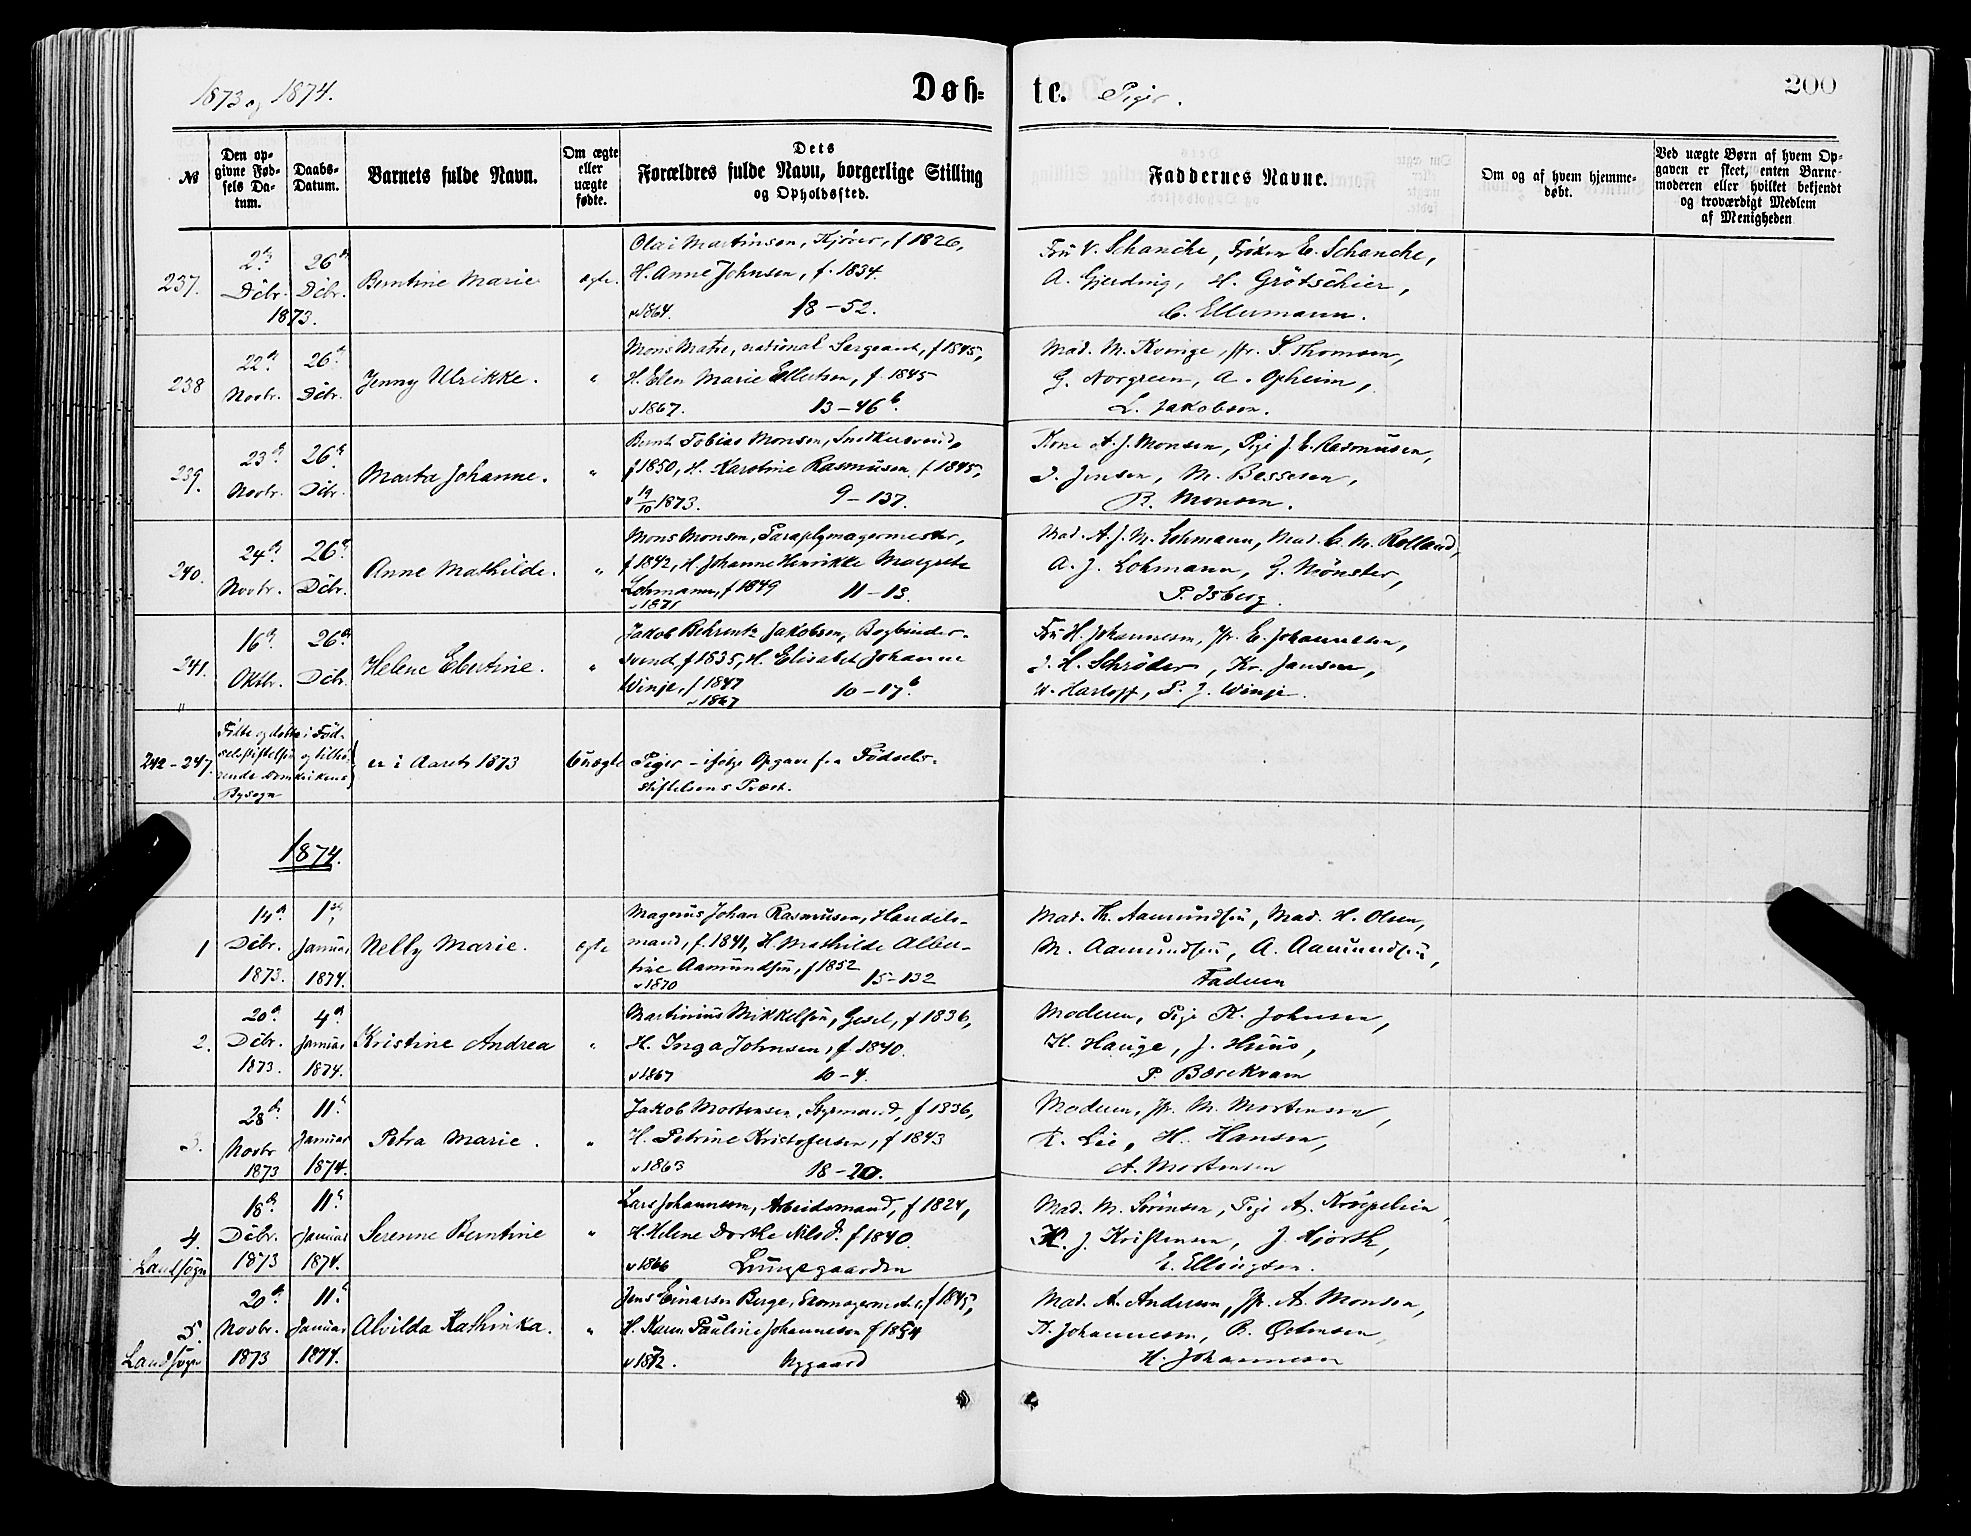 1873 og 1874.
Døb=
te. Piger.
200
№
Den op-
givne Fød-
sels Da-
tum.
Daabs-
Datum.
Barnets fulde Navn.
Om ægte
eller
uægte
fødte.
Dets
Forældres fulde Navn, borgerlige Stilling
og Opholdssted.
Faddernes Navne.
Om og af hvem hjemme-
døbt.
Ved uægte Børn af hvem Op-
gaven er skeet, enten Barne-
moderen eller hvilket bekjendt
og troværdigt Medlem
af Menigheden
237.
2den
Dcbr.
26de
Dcbr.
1873.
Berntine Marie
ægte.
Olai Martinsen, Kjører, f 1826,
H. Anne Johnsen, f. 1834.
v 1864. 18-52.
Fru V. Schanche, Frøken E. Schanche,
A. Gjerding, H. Grötschier,
C. Ellermann.
238
22de
Novbr.
26de
Dcbr.
Jenny Ulrikke.
"
Mons Matre, national Sergeant, f 1845,
H. Elen Marie Ellertsen, f. 1845
v 1867. 13-46b.
Mad. M. Kvinge, Jfr. S. Thomsen,
G. Norgreen, A. Opheim,
L. Jakobsen.
239.
23de
Novbr.
26de
Dcbr.
Marta Johanne.
"
Bernt Tobias Monsen, Snedkersvend,
f 1850, H. Karoline Rasmusen f 1845,
v 19/10 1873. 9-137.
Kone A. J. Monsen, Pige J. E. Rasmusen,
I. Jensen, M. Bessesen,
B. Monsen.
240.
24de
Novbr.
26de
Dcbr.
Anne Mathilde.
"
Mons Monsen, Paraplymagermester,
f 1842, H. Johanne Henrikke Margrete
Lohmann, f 1849 11-13.
v 1871
Mad. A. J. M. Lohmann, Mad. C. M. Rolland,
A. J. Lohmann, G. Mønster,
P. Isberg.
241.
16de
Oktbr.
26de
Dcbr.
Helene Ebertine.
"
Jakob Behrentz Jakobsen, Bogbinder-
svend f 1835, H. Elisabet Johanne
Winje, f 1847 10-17b
v 1867
Fru H. Johannesen, Jfr. E. Johannesen,
I. H. Schrøder, Kr. Jansen,
W. Harloff, P. J. Winje.
"
242-247.
Fødte og døbte i Fød-
selsstiftelsen og tilhø-
rende Domkirkens
Bysogn
er i Aaret 1873
6 uægte
Piger - ifølge Opgave fra Fødsels-
stiftelsens Præst.
1874.
1
14de
Dcbr.
1873.
1ste
Januar
1874.
Nelly Marie.
ægte
Magnus Johan Rasmusen, Handels-
mand, f. 1841, H. Mathilde Alber-
tine Aamundsen, f 1852
v 1870 15-132
Mad. Th. Aamundsen, Mad. H. Olsen,
M. Aamundsen, A. Aamundsen,
Faderen
2.
20de
Dcbr.
1873.
4de
Januar
1874.
Kristine Andrea
"
Martinius Mikkelsen, Gesel, f 1836,
H. Inga Johnsen, f. 1840.
v 1867 10-4.
Moderen, Pige K. Johnsen,
H. Hauge, J. Huus,
P. Bærekvam
3.
28de
Novbr
1873
11te
Januar
1874.
Petra Marie.
"
Jakob Mortensen, Styrmand, f 1836,
H. Petrine Kristofersen, f 1843
v 1863 18-20.
Moderen, Jfr. M. Mortensen,
K. Lie, H. Hansen,
A. Mortensen
4.
Landsogn
18de
Dcbr.
1873
11te
Januar
1874.
Serenne Berntine
"
Lars Johannesen, Arbeidsmand, f 1824,
H. Helene Dorthe Nilsd. f 1840.
v 1866 Lungegaarden
Mad. M. Sørensen, Pige A. Krøpelien,
H. J. Kristensen, J. Hjorth,
E. Ellingsen.
5.
Landsogn
20de
Novbr.
1873
11te
Januar
1874.
Alvilda Kathinka.
"
Jens Einarsen Berge, Skomagermest., f 1845,
H. Karen Pauline Johannesen f 1854
v 1872. Nygaard
Mad. A. Andersen, Jfr. A. Monsen,
A. Johannesen, B. Østensen,
H. Johannesen